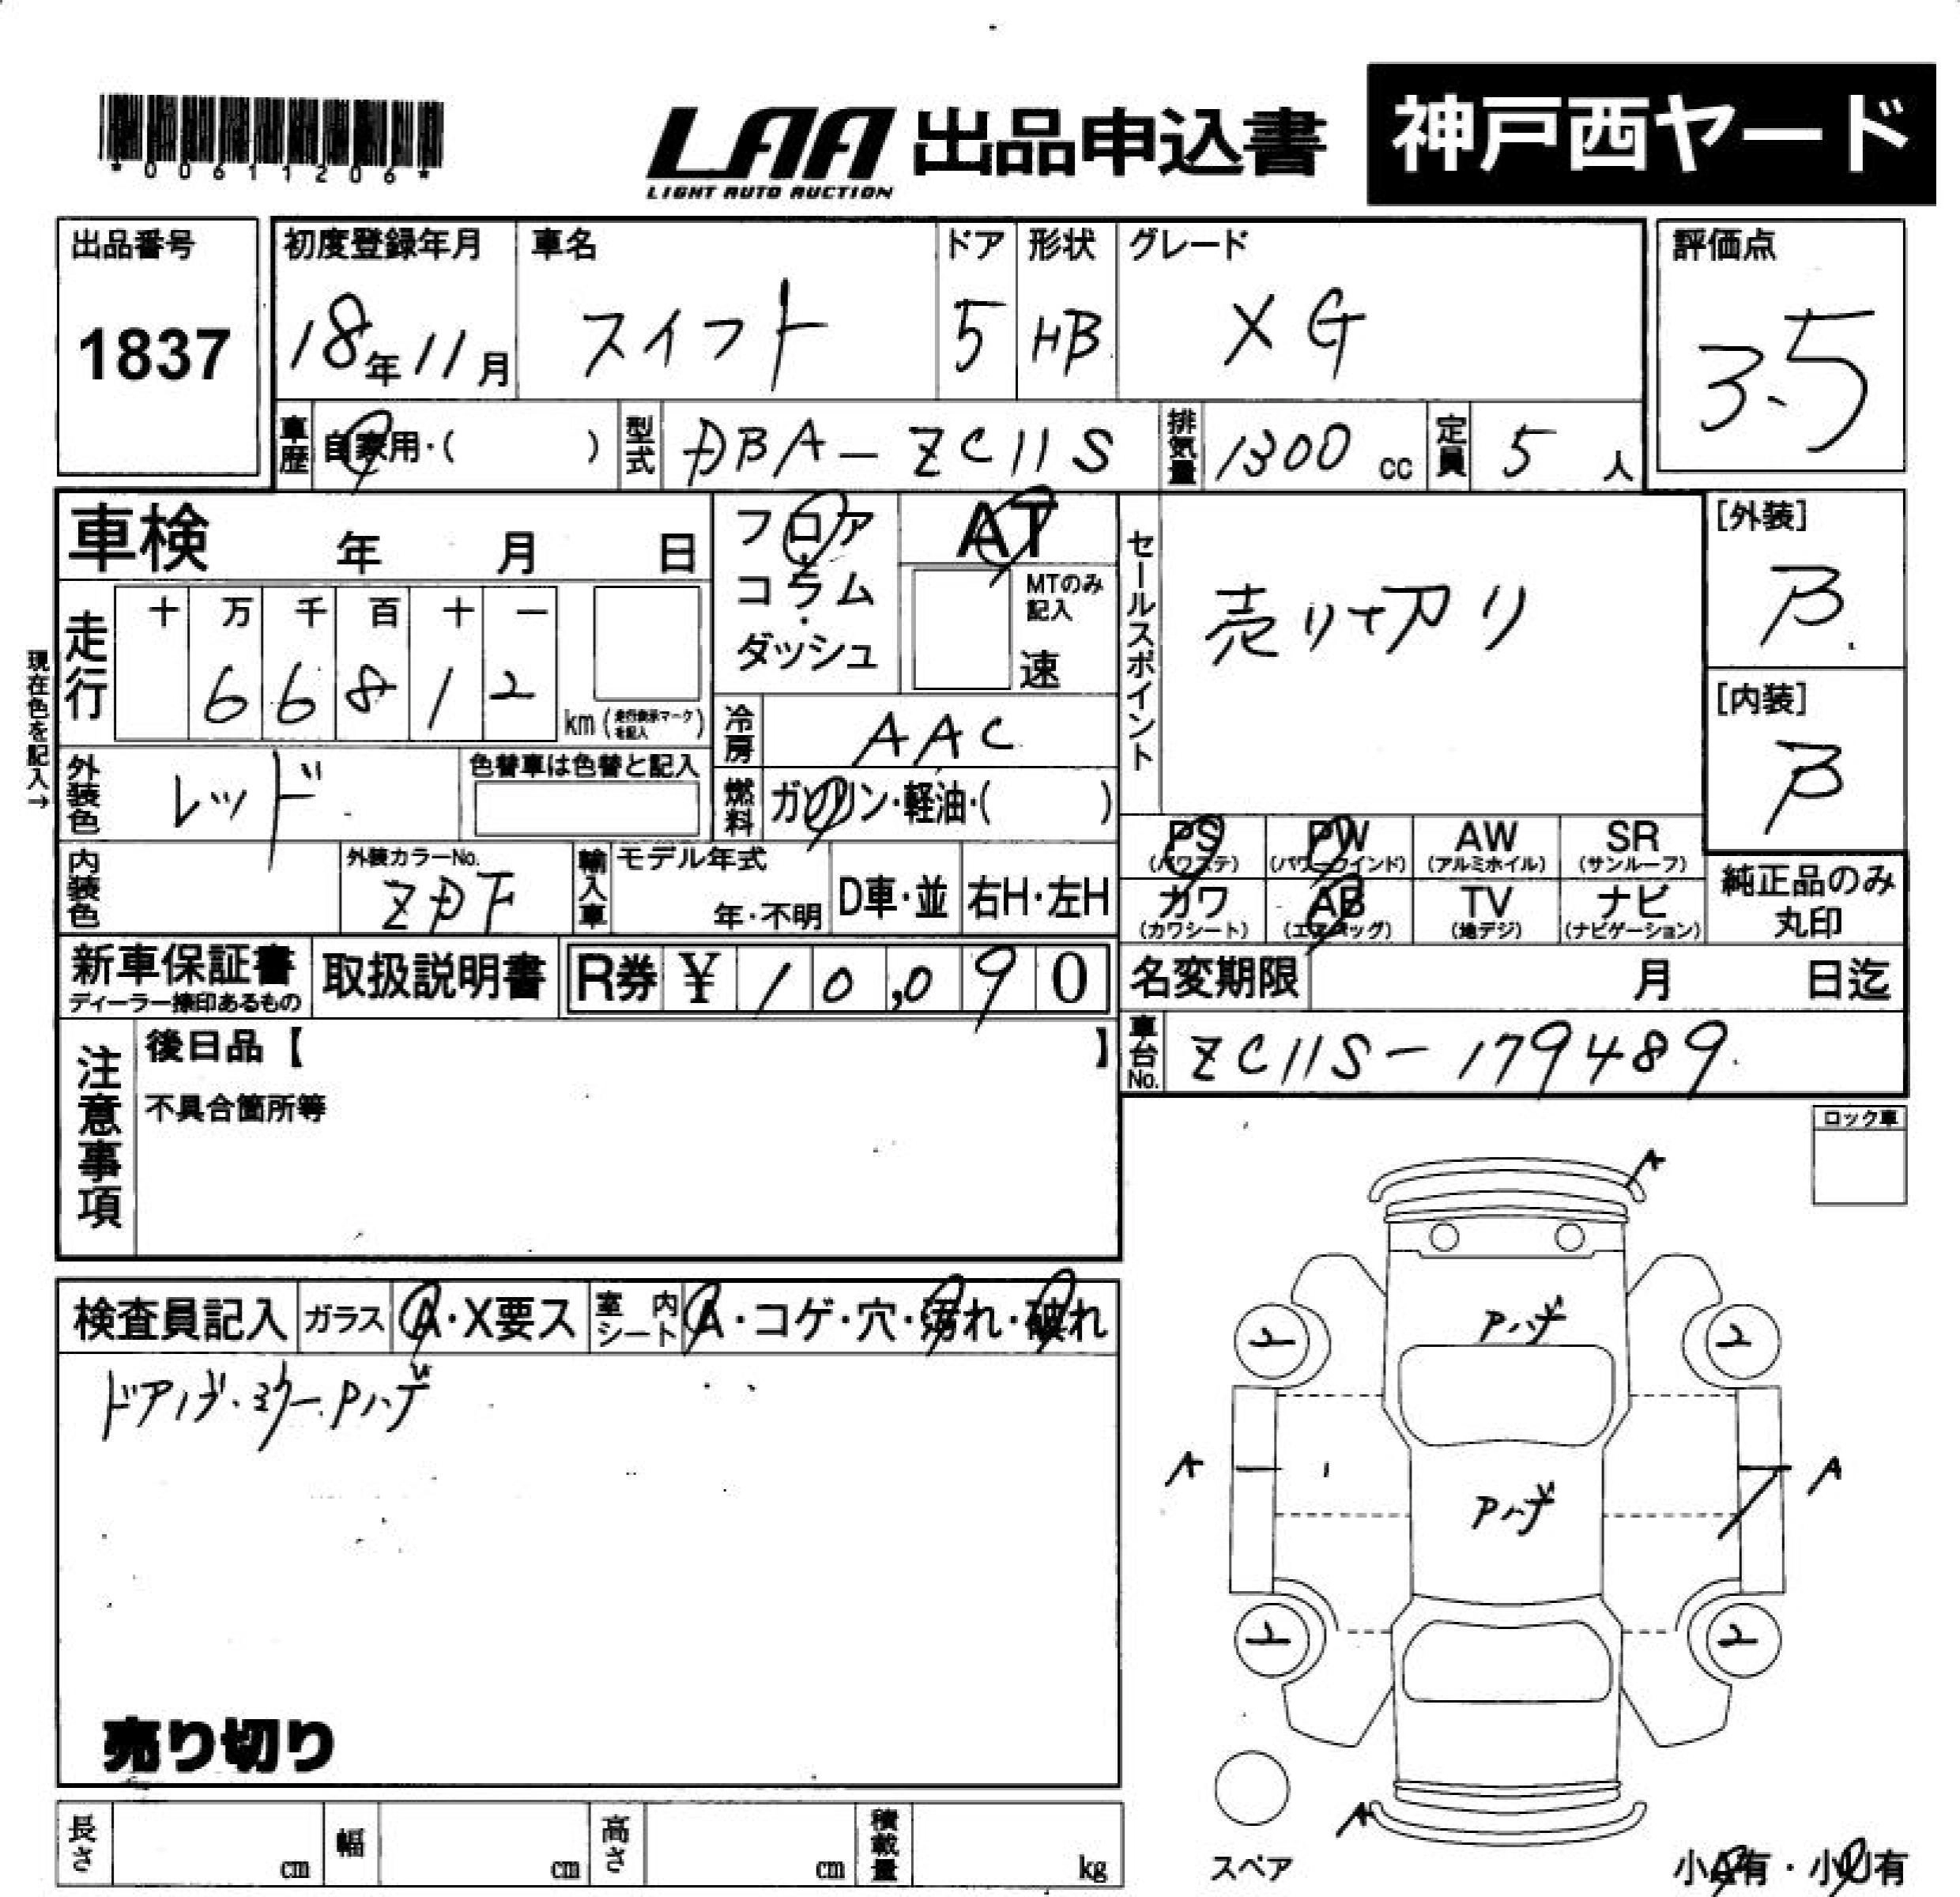 *00611206*
LAA 出品申込書 神戸西ヤード
LIGHT AUTO AUCTION
出品番号 初度登録年月 車名 ドア 形状 グレード 評価点
1837 18年11月 スイフト 5 HB XG 3.5
車歴 自家用・( ) 型式 DBA-ZC11S 排気量 1300 cc 定員 5 人
車検 年 月 日 フロア・コラム・ダッシュ AT
MTのみ記入 速
セールスポイント 売り切り
[外装] B
[内装] B
現在色を記入→
走行 十 万 千 百 十 一
6 6 8 1 2 km (走行表示マークを記入)
冷房 AAC
外装色 レッド 色替車は色替と記入
燃料 ガソリン・軽油・( )
PS (パワステ) PW (パワーウインド) AW (アルミホイル) SR (サンルーフ)
カワ (カワシート) AB (エアバッグ) TV (地デジ) ナビ (ナビゲーション)
純正品のみ丸印
内装色 外装カラーNo. ZDF 輸入車 モデル年式 年・不明 D車・並 右H・左H
新車保証書 ディーラー捺印あるもの 取扱説明書 R券 ¥ 10,090
名変期限 月 日迄
車台No. ZC11S-179489
注意事項 後日品【 】
不具合箇所等
ロック車
検査員記入 ガラス A・X要ス 室内シート A・コゲ・穴・汚れ・破れ
ドアノブ・ミラーPハゲ
売り切り
A
Pハゲ
2 2
A A
Pハゲ
2 2
A
スペア
小A有・小U有
長さ cm 幅 cm 高さ cm 積載量 kg